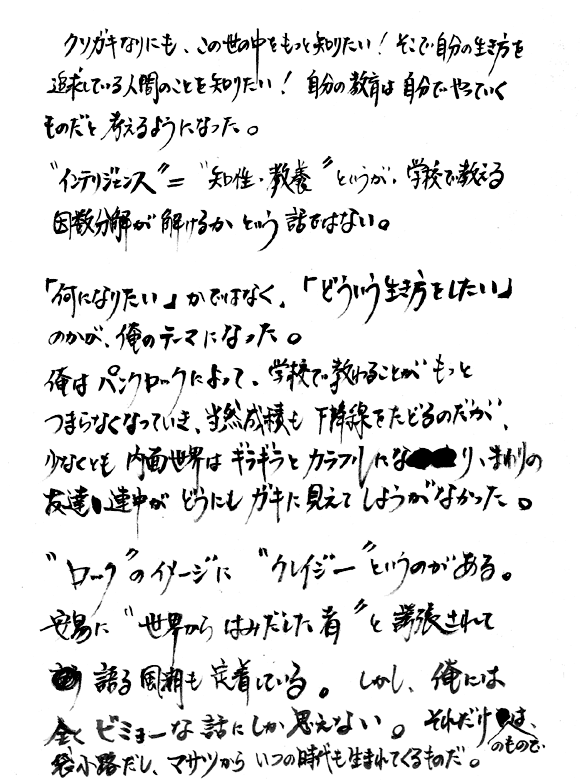 クソガキなりにも、この世の中をもっと知りたい！そこで自分の生き方を
追求している人間のことを知りたい！ 自分の教育は自分でやっていく
ものだと考えるようになった。
"インテリジェンス"="知性・教養"というが、学校で教える
因数分解が解けるかという話ではない。
「何になりたい」かではなく、「どういう生き方をしたい」
のかが、俺のテーマになった。
俺はパンクロックによって、学校で教わることがもっと
つまらなくなっていき、当然成績も下降線をたどるのだが、
少なくとも内面世界はギラギラとカラフルになり、まわりの
友達連中がどうにもガキに見えてしようがなかった。
"ロック"のイメージに"クレイジー"というのがある。
安易に"世界からはみだした者"と誇張されて
語る風潮も定着している。しかし、俺には
全くビミョーな話にしか思えない。それだけは、
袋小路だし、マサツからいつの時代も生まれてくるものだ。
のもので